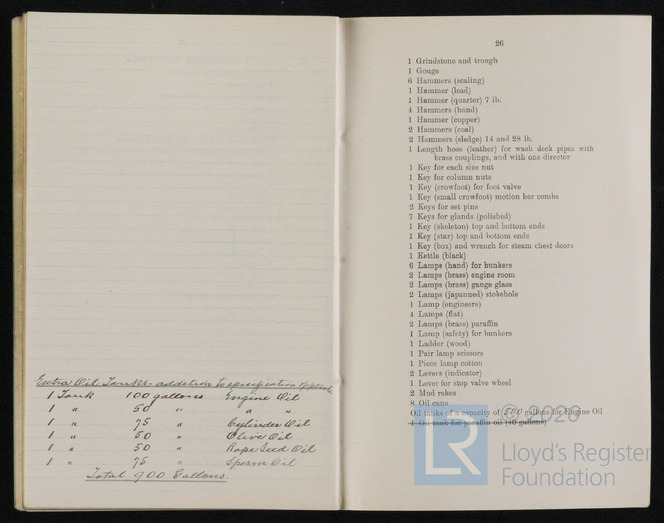 Extra Oil Tanks addition to specification opposite
1 Tank 100 gallons Engine Oil
1 " 50 " " "
1 " 75 " Cylinder Oil
1 " 50 " Olive Oil
1 " 50 " Rape Seed Oil
1 " 75 " Sperm Oil
Total 900 Gallons.
26
1 Grindstone and trough
1 Gouge
6 Hammers (scaling)
1 Hammer (lead)
1 Hammer (quarter) 7 lb.
4 Hammers (hand)
1 Hammer (copper)
2 Hammers (coal)
2 Hammers (sledge) 14 and 28 lb.
1 Length hose (leather) for wash deck pipes with
brass couplings, and with one director
1 Key for each size nut
1 Key for column nuts
1 Key (crowfoot) for foot valve
1 Key (small crowfoot) motion bar combs
2 Keys for set pins
7 Keys for glands (polished)
1 Key (skeleton) top and bottom ends
1 Key (star) top and bottom ends
1 Key (box) and wrench for steam chest doors
1 Kettle (black)
6 Lamps (hand) for bunkers
2 Lamps (brass) engine room
2 Lamps (brass) gauge glass
2 Lamps (japanned) stokehole
1 Lamp (engineers)
4 Lamps (flat)
2 Lamps (brass) paraffin
1 Lamp (safety) for bunkers
1 Ladder (wood)
1 Pair lamp scissors
1 Piece lamp cotton
2 Levers (indicator)
1 Lever for stop valve wheel
2 Mud rakes
8 Oil cans
Oil tanks of a capacity of 500 gallons for Engine Oil
1 Oil tank for paraffin oil (40 gallons)
© 2020
LR
Lloyd's Register
Foundation